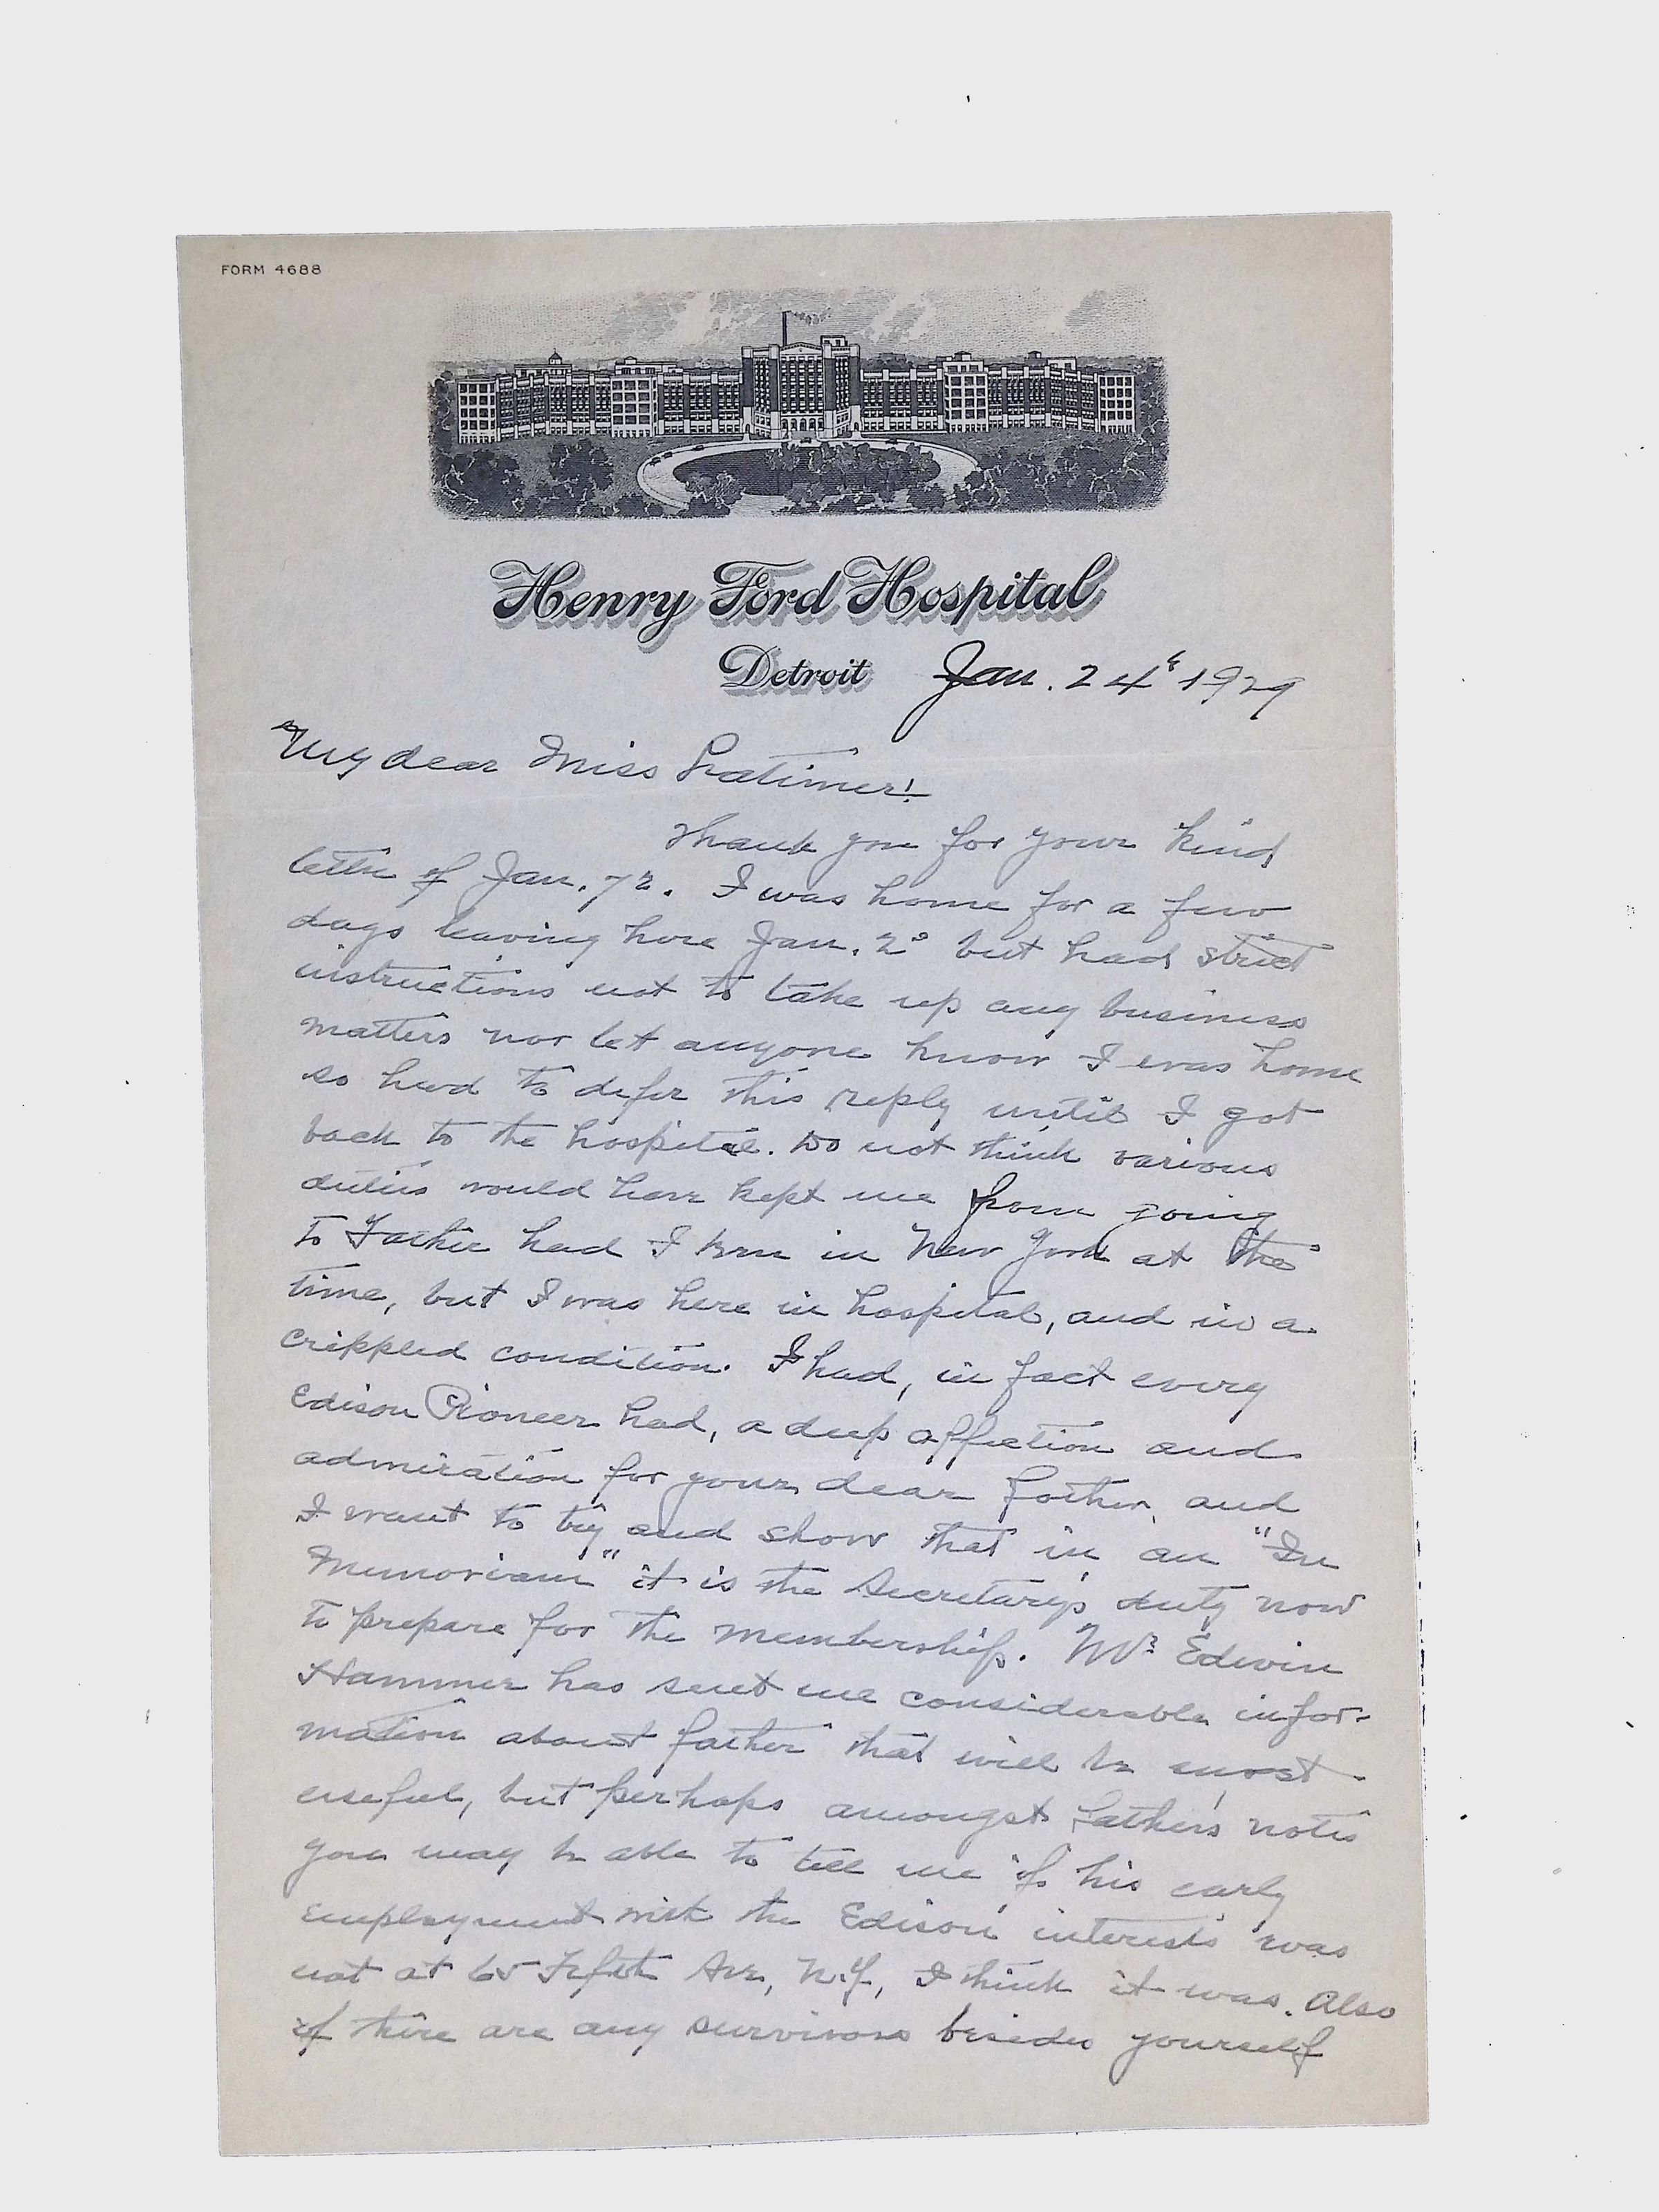 FORM 4688
Henry Ford Hospital
Detroit Jan. 24th 1929
My dear Miss Latimer:
Thank you for your kind
letter of Jan. 7th. I was home for a few
days leaving here Jan. 2d but had strict
instructions not to take up any business
matters nor let anyone know I was home
so had to defer this reply until I got
back to the hospital. Do not think various
duties would have kept me from going
to Father had I been in New York at the
time, but I was here in hospital, and in a
crippled condition. I had, in fact every
Edison Pioneer had, a deep affection and
admiration for your dear father, and
I want to try and show that in an "In
Memoriam" it is the Secretary's duty now
to prepare for the membership. Mr. Edwin
Hammer has sent me considerable infor-
mation about father that will be most
useful, but perhaps amongst father's notes
you may be able to tell me if his early
employment with the Edison interests was
not at 65 Fifth Ave, N.Y., I think it was. Also
if there are any survivors besides yourself